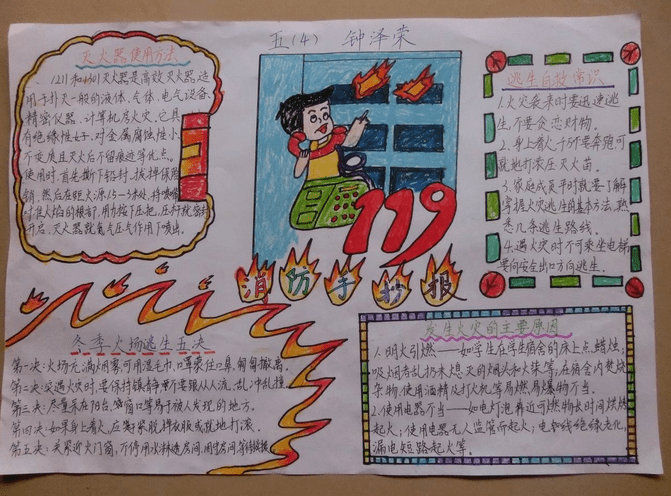 五(4) 钟泽荣
灭火器使用方法
1211和 灭火器是高效灭火器,适
用于扑灭一般的液体、气体、电气设备、
精密仪器、计算机房火灾,它具
有绝缘性好、对金属腐蚀性小、
不变质且灭火后不留痕迹等优点。
使用时,首先撕下铅封,拔掉保险
销,然后在距火源1.5-3米处,将喷嘴
对准火焰的根部,用力按下压把,压杆就
开启,灭火器就氮气压气作用下喷出。
119
消防手抄报
逃生自救常识
1.火灾袭来时要迅速逃
生,不要贪恋财物。
2.身上着火,千万不要奔跑可
就地打滚压灭火苗。
3.家庭成员平时就要了解
掌握火灾逃生的基本方法,熟
悉几条逃生路线。
4.遇火灾时不可乘坐电梯
要向安全出口方向逃生。
冬季火场逃生五决
第一决:火场 满烟雾,可用湿毛巾,口罩捂住口鼻,匍匐撤离。
第二决:突遇火灾时,要保持镇静,千万要 从人流,乱冲乱撞。
第三决:尽量呆在阳台,窗口等易于被人发现的地方。
第四决:如果身上着火,应 脱掉衣服或就地打滚。
第五决:关紧近火门窗, 房间, 房间,等待救援。
发生火灾的主要原因
1.明火引燃——如学生在学生宿舍的床上点蜡烛;
吸烟者乱扔未熄灭的烟火和火柴等,在宿舍内焚烧
杂物,使用酒精及打火机等易燃易爆物不当。
2.使用电器不当——如电灯泡靠近可燃物长时间烘烤
起火;使用电器无人监管而起火;电线绝缘老化,
漏电短路起火等。